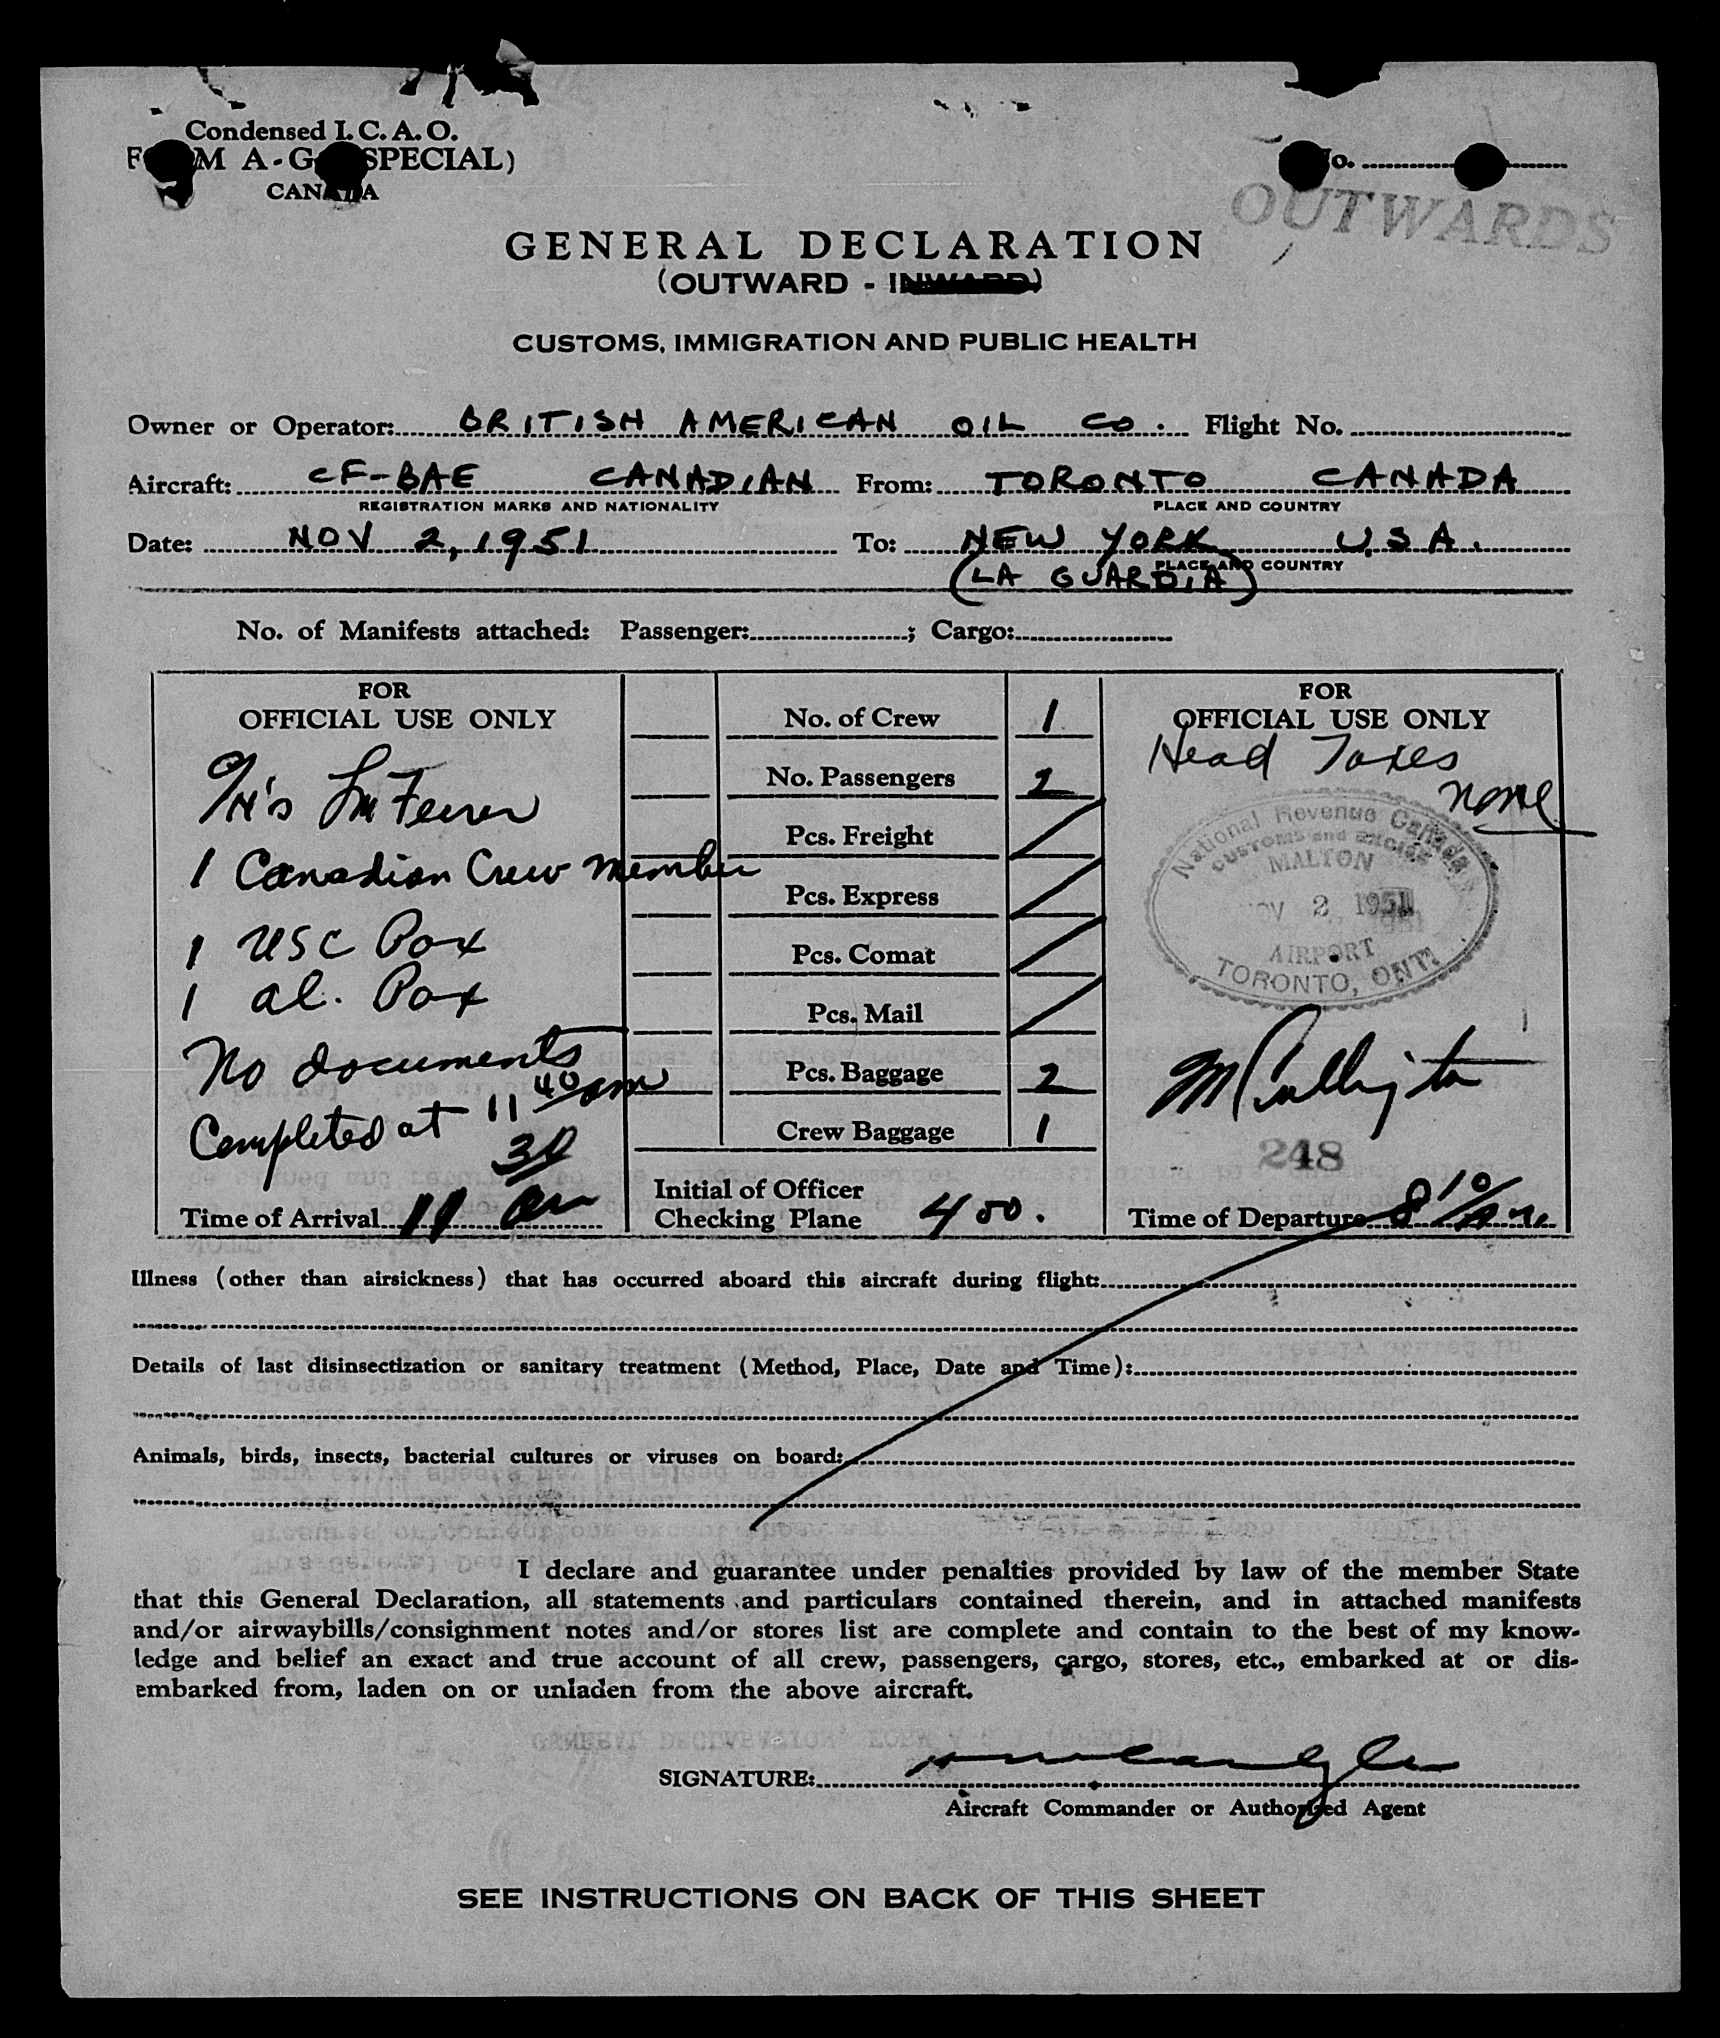 Condensed I. C. A. O.
A-G SPECIAL)
CANADA
OUTWARDS
GENERAL DECLARATION
(OUTWARD - INWARD)
CUSTOMS, IMMIGRATION AND PUBLIC HEALTH
Owner or Operator: BRITISH AMERICAN OIL CO. Flight No.
Aircraft: CF-BAE CANADIAN From: TORONTO CANADA
REGISTRATION MARKS AND NATIONALITY PLACE AND COUNTRY
Date: NOV 2, 1951 To: NEW YORK U.S.A.
PLACE AND COUNTRY
(LA GUARDIA)
No. of Manifests attached: Passenger: ; Cargo:
FOR
OFFICIAL USE ONLY
1 Canadian Crew Member
1 USC Pax
1 al. Pax
No documents
Completed at 11 40 am
Time of Arrival 11 30 am
No. of Crew 1
No. Passengers 2
Pcs. Freight
Pcs. Express
Pcs. Comat
Pcs. Mail
Pcs. Baggage 2
Crew Baggage 1
Initial of Officer
Checking Plane
FOR
OFFICIAL USE ONLY
Head Taxes
none
National Revenue Canada
CUSTOMS and EXCISE
MALTON
NOV 2 1951
AIRPORT
TORONTO, ONT.
248
Time of Departure 8 10
Illness (other than airsickness) that has occurred aboard this aircraft during flight:
Details of last disinsectization or sanitary treatment (Method, Place, Date and Time):
Animals, birds, insects, bacterial cultures or viruses on board:
I declare and guarantee under penalties provided by law of the member State
that this General Declaration, all statements and particulars contained therein, and in attached manifests
and/or airwaybills/consignment notes and/or stores list are complete and contain to the best of my know-
ledge and belief an exact and true account of all crew, passengers, cargo, stores, etc., embarked at or dis-
embarked from, laden on or unladen from the above aircraft.
SIGNATURE:
Aircraft Commander or Authorized Agent
SEE INSTRUCTIONS ON BACK OF THIS SHEET